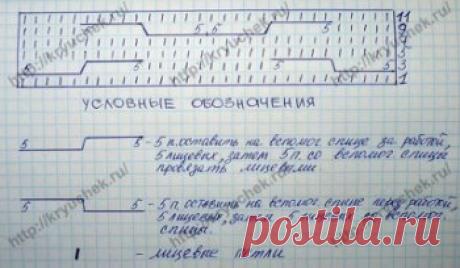 5 5,5 5 11
9
7
5
5 5 5 5 3
1
УСЛОВНЫЕ ОБОЗНАЧЕНИЯ
5 5 - 5 п. оставить на вспомог. спице за работой,
5 лицевых, затем 5 п. со вспомог. спицы
провязать лицевыми
5 5 - 5 п. оставить на вспомог. спице перед работой,
5 лицевых, затем 5 со вспомог.
спицы.
I - лицевые петли
http://kryuchek.ru/
postila.ru